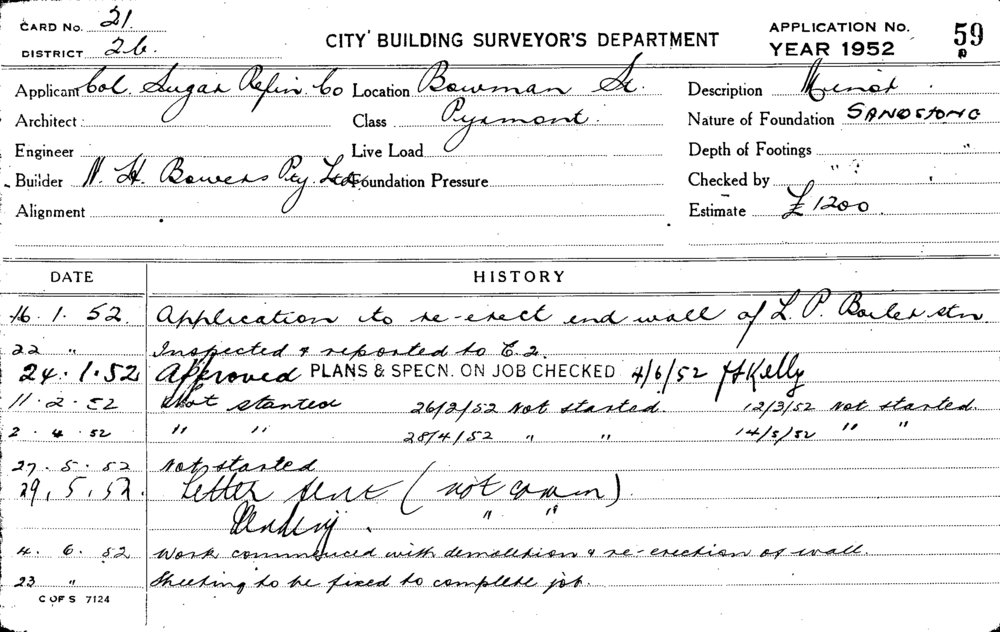 CARD No. 21.
DISTRICT 26.
CITY BUILDING SURVEYOR'S DEPARTMENT
APPLICATION No. 59
YEAR 1952
Applicant Col. Sugar Refin Co Location Bowman St. Description Minor
Architect Class Pyrmont. Nature of Foundation SANDSTONE
Engineer Live Load Depth of Footings "
Builder N. H. Bowers Pty. Ltd. Foundation Pressure Checked by
Alignment Estimate £1200
DATE HISTORY
16.1.52. Application to re-erect end wall of L. P. Boiler stn
22 " Inspected & reported to E.2.
24.1.52 Approved PLANS & SPECN. ON JOB CHECKED 4/6/52 Kelly
11.2.52 Not started 26/2/52 Not started. 12/3/52 Not started.
2.4.52 " " 28/4/52 " " 14/5/52 " "
27.5.52 Not started
29.5.52. Letter sent (not comm).
" "
4.6.52 Work commenced with demolition & re-erection of wall.
23 " Sheeting to be fixed to complete job.
C OF S 7124